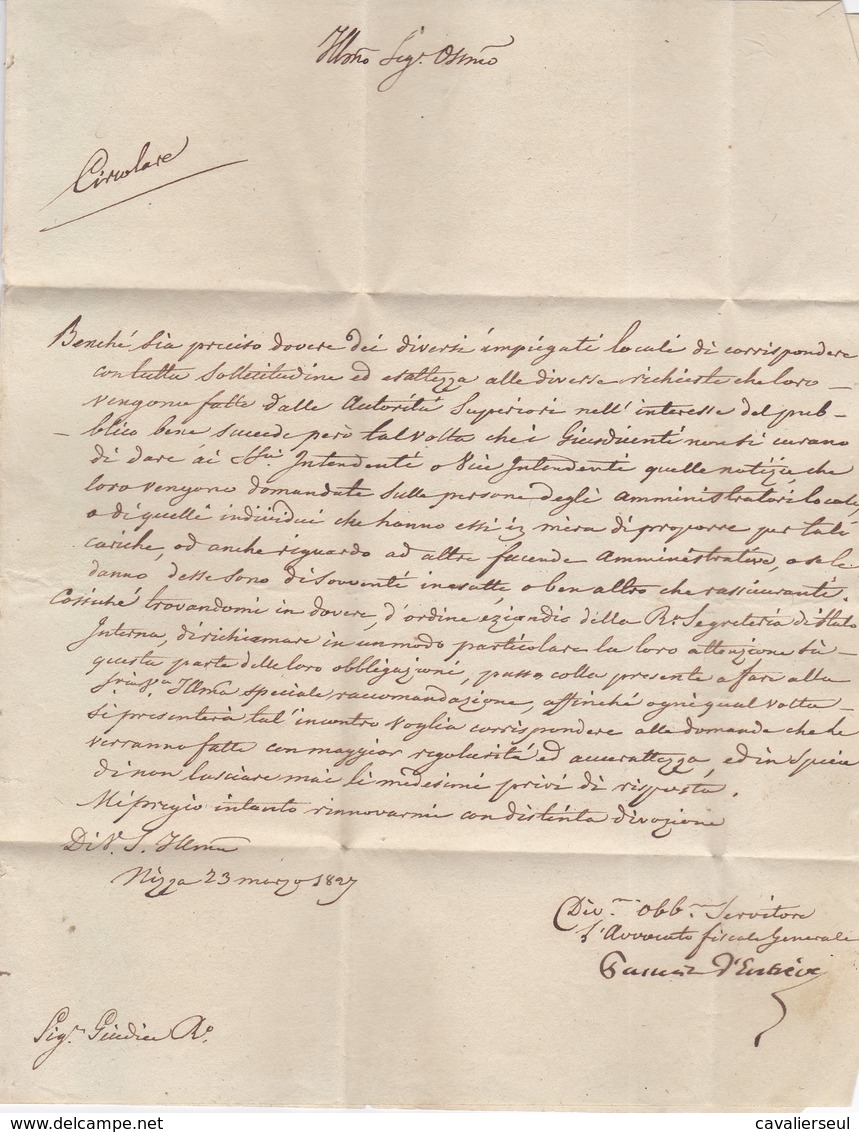 Illmo Sigr. Ossmo
Circolare
Benché sia preciso dovere dei diversi impiegati locali di corrispondere
con tutta sollecitudine ed esattezza alle diverse richieste che loro –
vengono fatte dalle Autorità Superiori nell' interesse del pub–
–blico bene succede però talvolta che i Giusdicenti non si curano
di dare ai Intendenti o Vice Intendenti quelle notizie, che
loro vengono domandate sulle persone degli amministratori locali,
o di quelli individui che hanno essi in mira di proporre per tali
cariche, od anche riguardo ad altre facende amministrative, o se le
danno desse sono di sovventi inesatte, o ben altro che rassicuranti.
Cosicché trovandomi in dovere, d'ordine eziandio della Ra. Segreteria di Stato
Interna, di richiamare in un modo particolare la loro attenzione su
questa parte delle loro obbligazioni, passo colla presente a fare alla
Illma speciale raccomandazione, affinché ogni qual volta –
si presenterà tal' incontro voglia corrispondere alle domande che le
verranno fatte con maggior regolarità ed accuratezza, ed in specie
di non lasciare mai li medesimi privi di risposta.
Mi pregio intanto rinnovarmi con distinta divozione
Di V. S. Illma
Nizza 23 marzo 1827
Div.mo Obb.mo Servitore
L'Avvocato fiscale Generale
d'Entrèves
Sigr. Giudice
cavalierseul